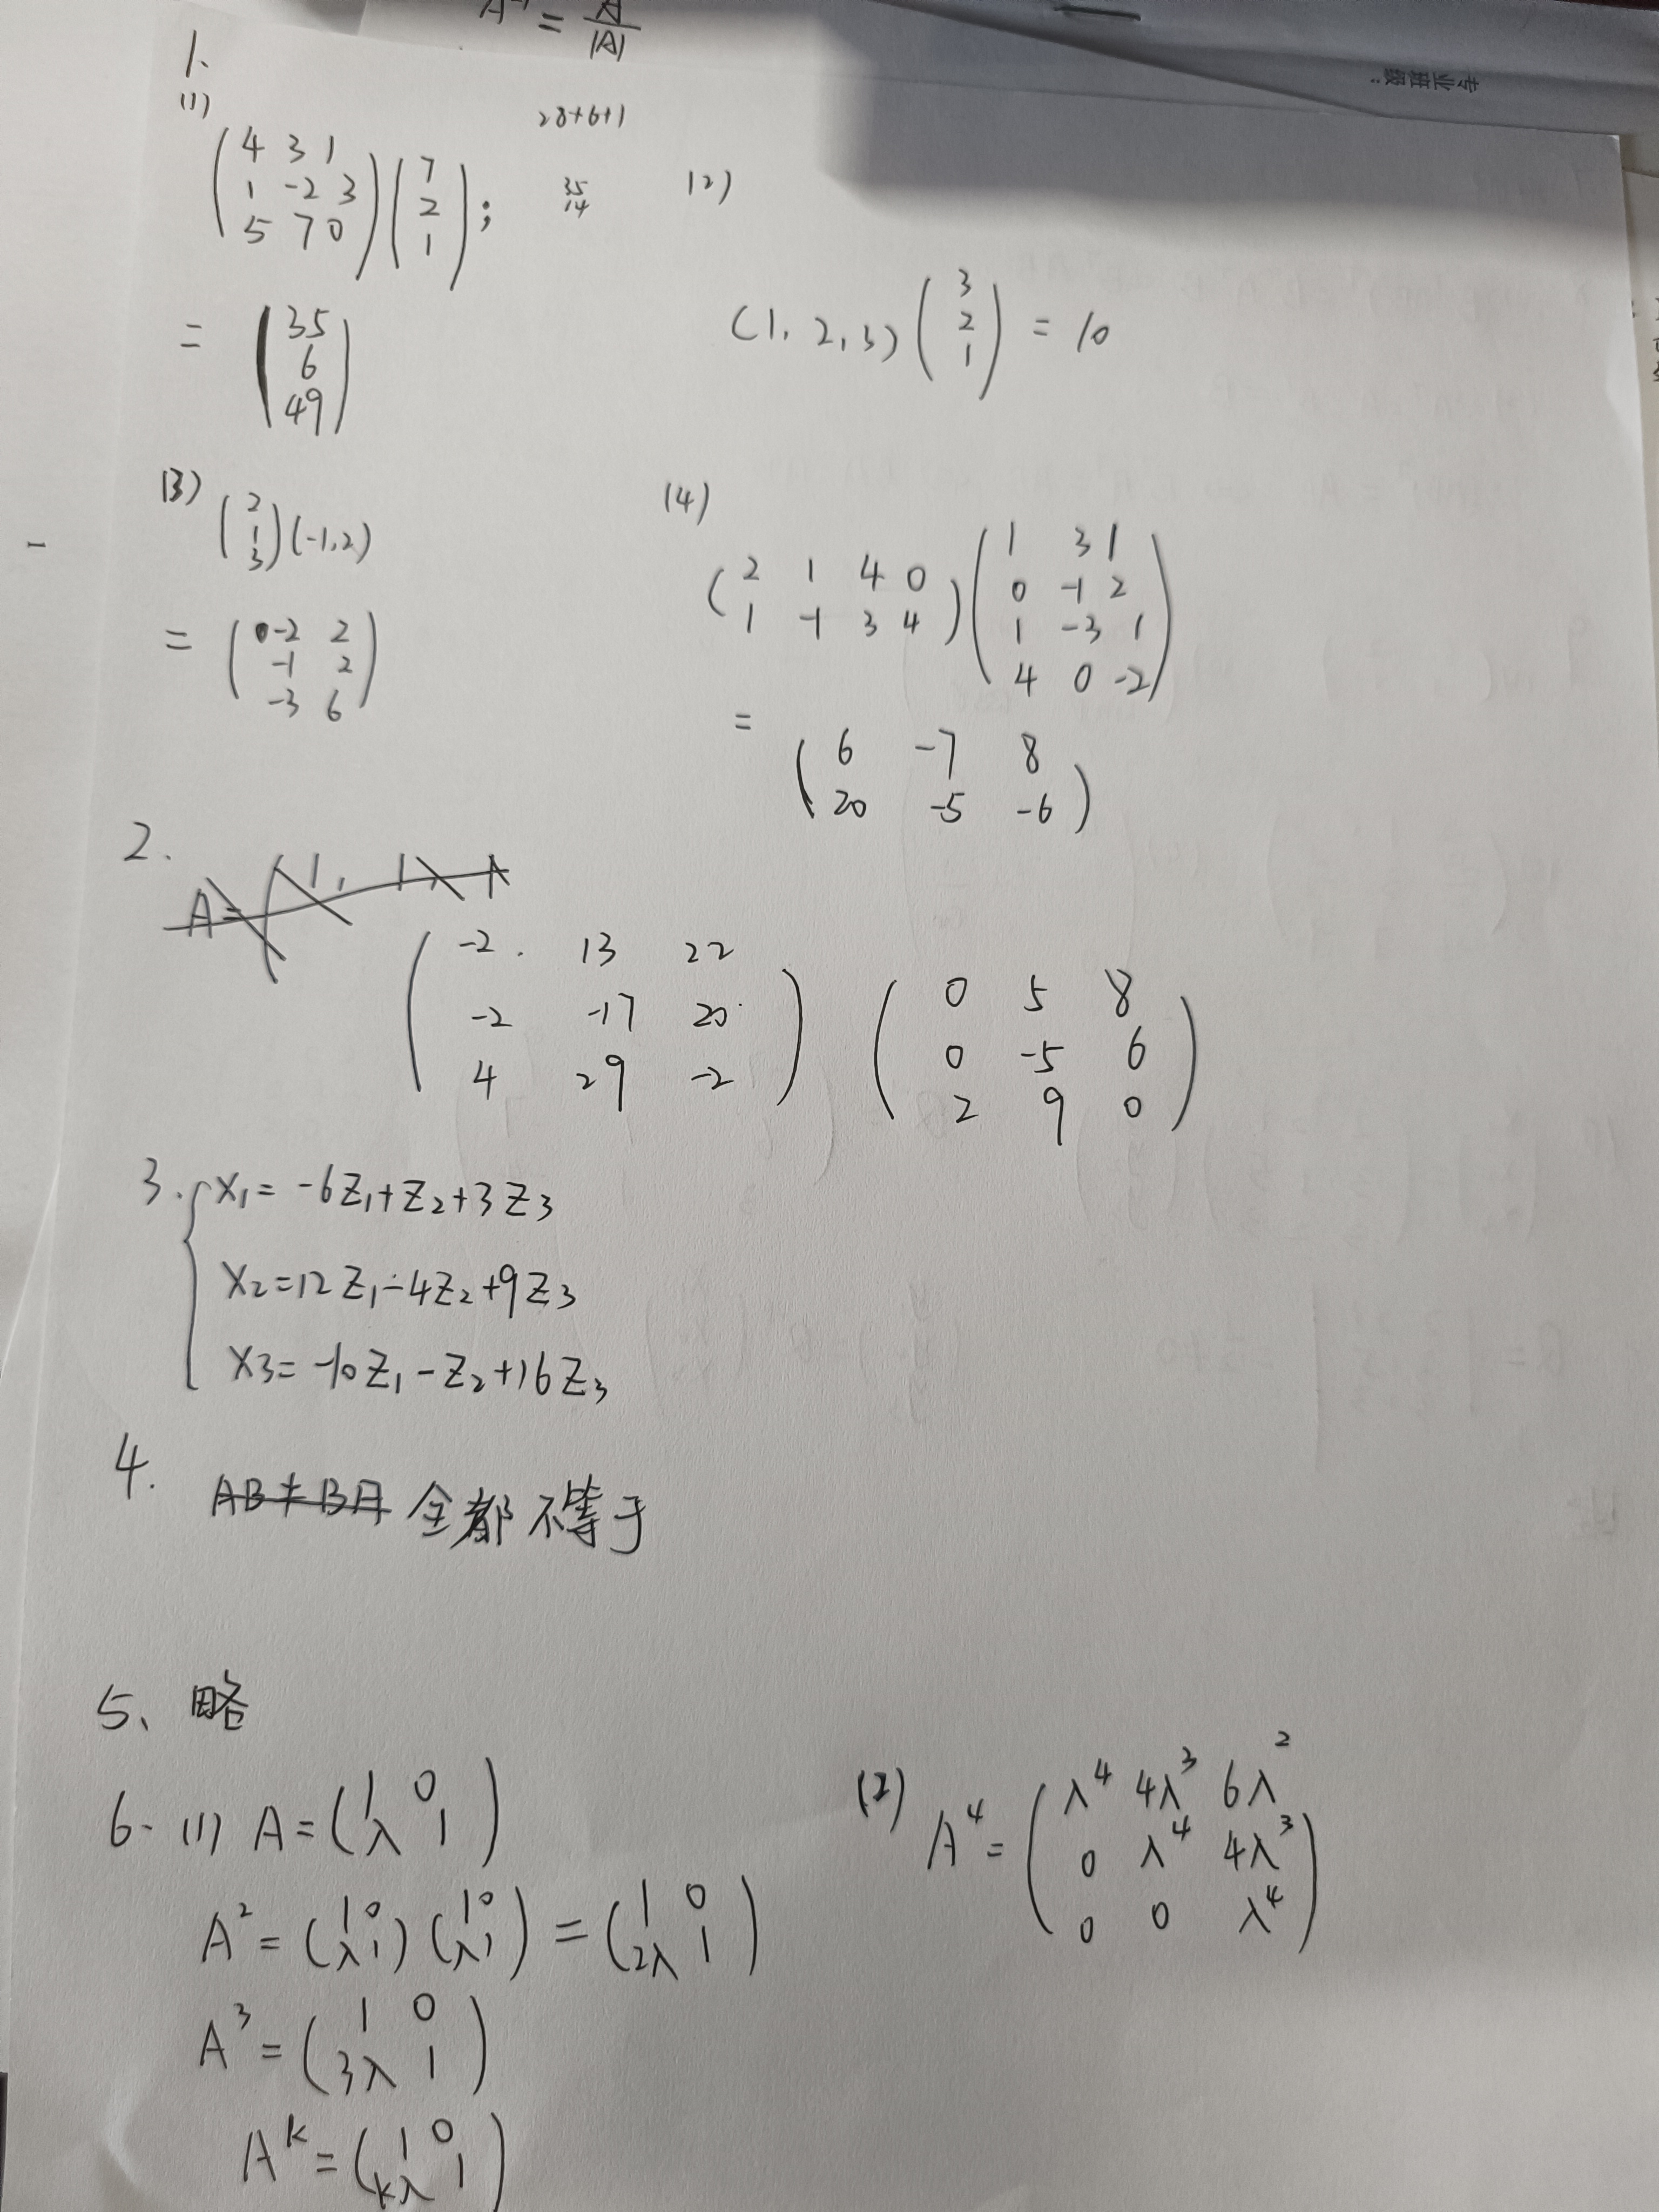 A⁻¹ = A/|A|
专业班级:
1.
(1)
28+6+1
( 4 3 1
1 -2 3
5 7 0 ) ( 7
2
1 ) ;
35
14
= ( 35
6
49 )
(2)
(1, 2, 3) ( 3
2
1 ) = 10
(3)
( 2
1
3 ) (-1, 2)
= ( -2 2
-1 2
-3 6 )
(4)
( 2 1 4 0
1 -1 3 4 ) ( 1 3 1
0 -1 2
1 -3 1
4 0 -2 )
= ( 6 -7 8
20 -5 -6 )
2.
A= ( 1, 1, 1
( -2 13 22
-2 -17 20
4 29 -2 )
( 0 5 8
0 -5 6
2 9 0 )
3. { X₁= -6Z₁+Z₂+3Z₃
X₂=12Z₁-4Z₂+9Z₃
X₃=-10Z₁-Z₂+16Z₃
4.
AB≠BA 全都不等于
5、略
6. (1) A= ( 1 0
λ 1 )
A²= ( 1 0
λ 1 ) ( 1 0
λ 1 ) = ( 1 0
2λ 1 )
A³= ( 1 0
3λ 1 )
Aᵏ= ( 1 0
kλ 1 )
(2) A⁴= ( λ⁴ 4λ³ 6λ²
0 λ⁴ 4λ³
0 0 λ⁴ )